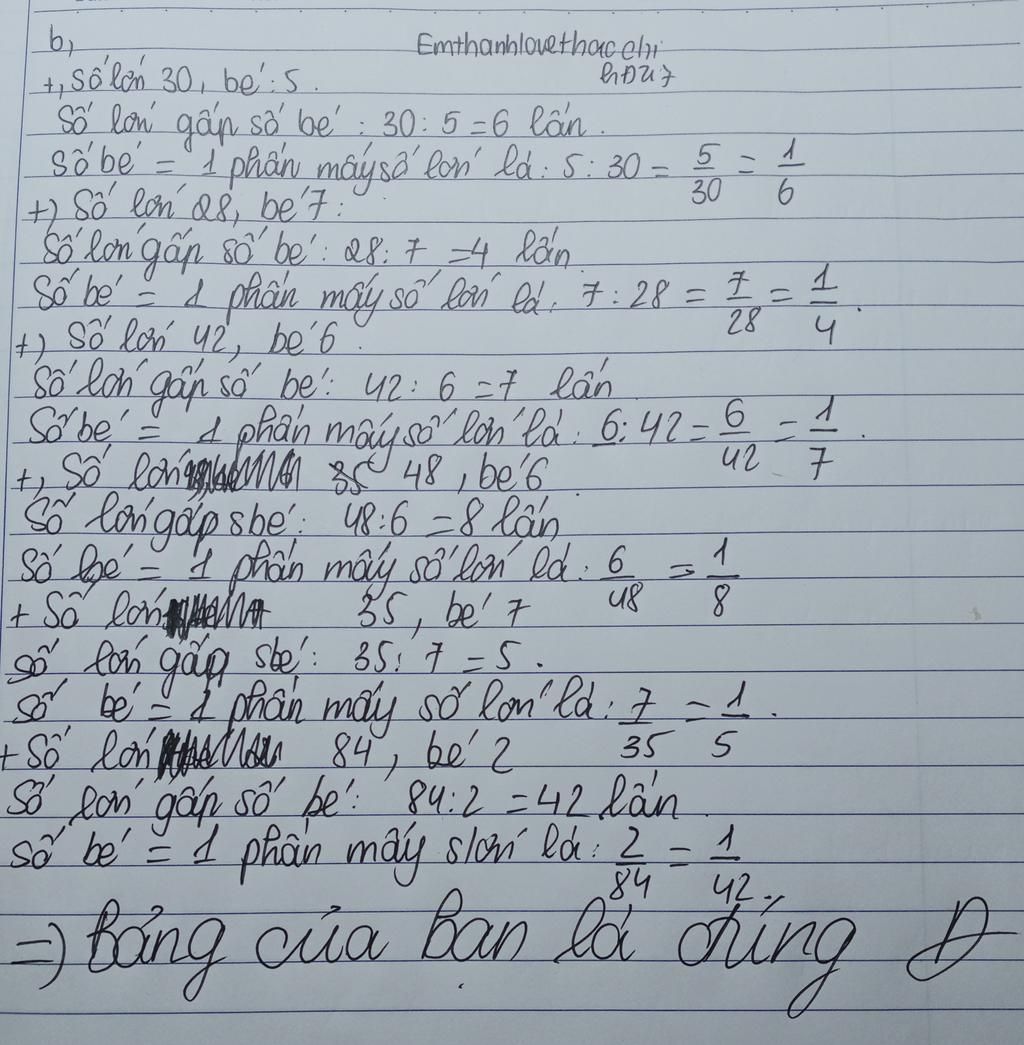 b,
Emthanhlovethacchi
hDU7
+, Số lớn 30, bé : 5.
Số lớn gấp số bé : 30 : 5 = 6 lần.
Số bé = 1 phần mấy số lớn là : 5 : 30 = 5/30 = 1/6
+) Số lớn 28, bé 7 :
Số lớn gấp số bé : 28 : 7 = 4 lần
Số bé = 1 phần mấy số lớn là : 7 : 28 = 7/28 = 1/4.
+) Số lớn 42, bé 6.
Số lớn gấp số bé : 42 : 6 = 7 lần
Số bé = 1 phần mấy số lớn là : 6 : 42 = 6/42 = 1/7.
+, Số lớn 35 48, bé 6
Số lớn gấp sbé : 48 : 6 = 8 lần
Số bé = 1 phần mấy số lớn là : 6/48 = 1/8
+ Số lớn 35, bé 7
Số lớn gấp sbé : 35 : 7 = 5.
Số bé = 1 phần mấy số lớn là : 7/35 = 1/5.
+ Số lớn 84, bé 2
Số lớn gấp số bé : 84 : 2 = 42 lần.
Số bé = 1 phần mấy slớn là : 2/84 = 1/42.
=) Bảng của bạn là đúng